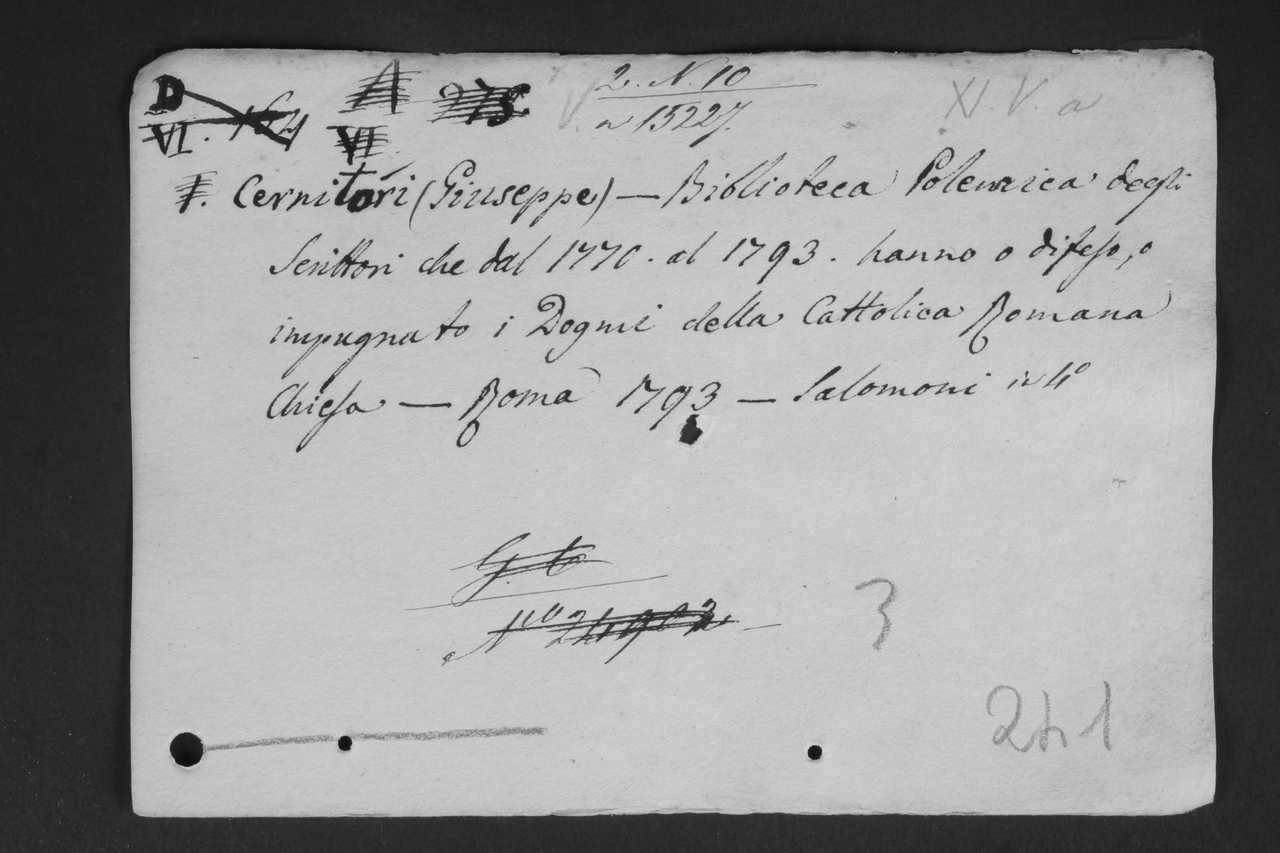 D A 275 2. N. 10 XI. V. a
VI. 164 VI V. a 15227.
F. Cernitori (Giuseppe) — Biblioteca Polemica degli
Scrittori che dal 1770. al 1793. hanno o difeso, o
impugnato i Dogmi della Cattolica Romana
Chiesa — Roma 1793 — Salomoni in 4°
G. C
N.ro 24902
3
241